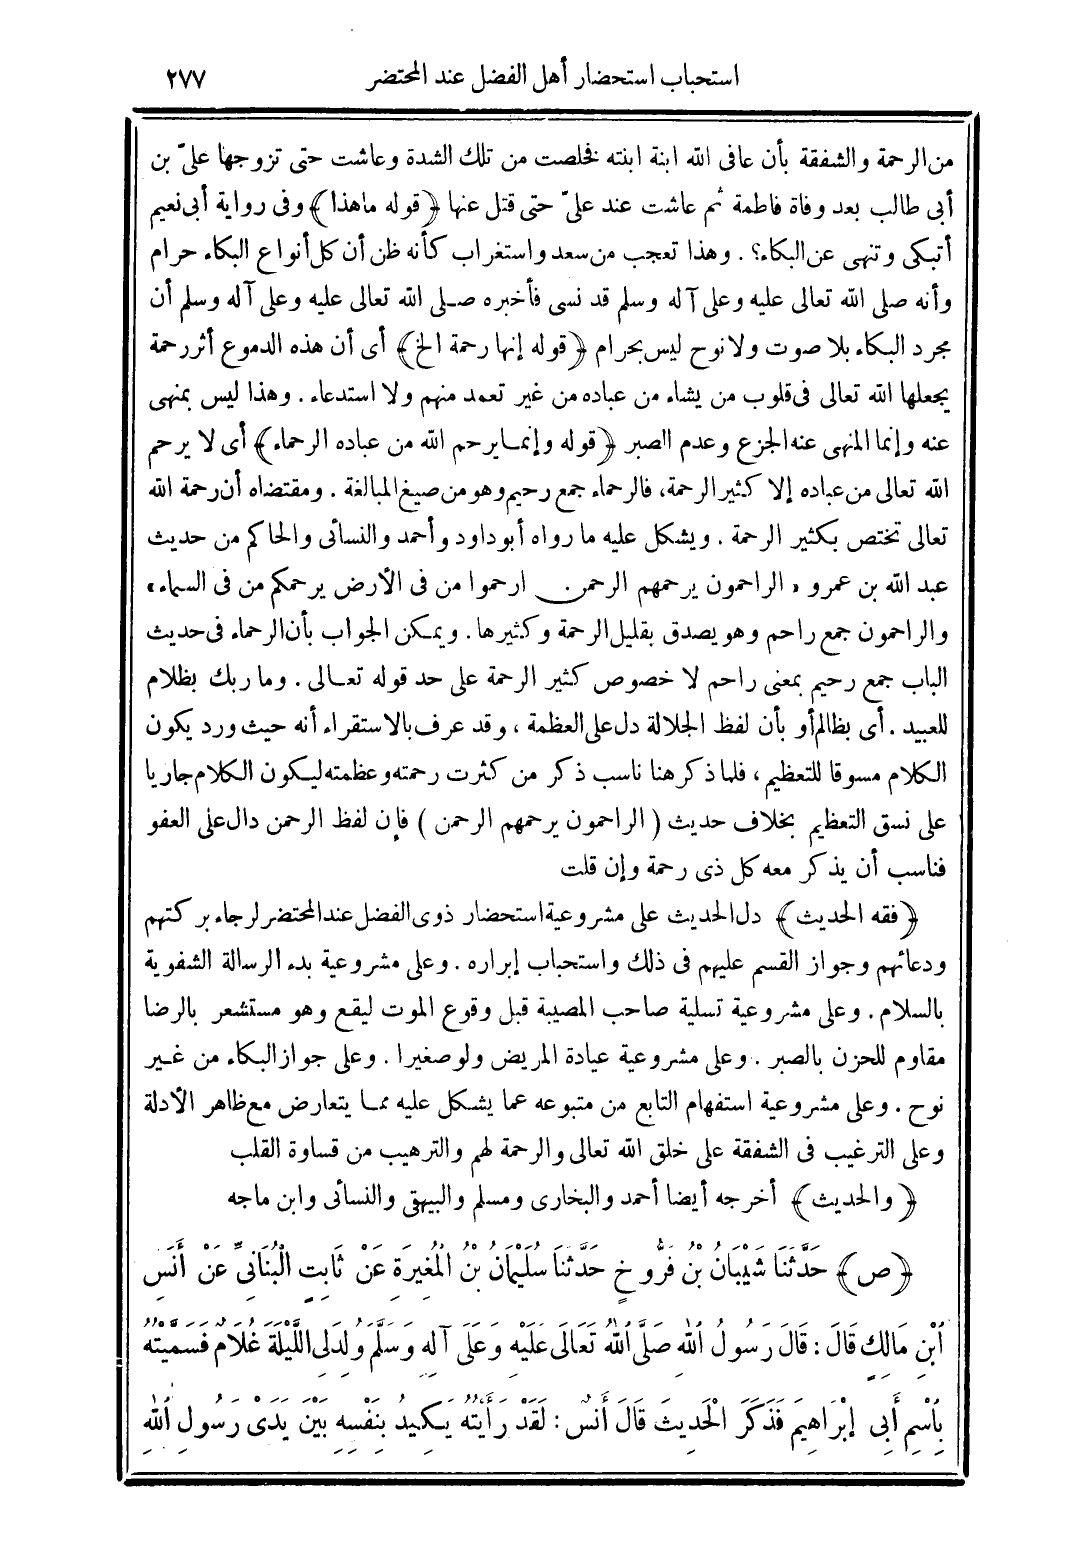 استحباب استحضار أهل الفضل عند المحتضر ٢٧٧
من الرحمة والشفقة بأن عافى الله ابنة ابنته فخلصت من تلك الشدة وعاشت حتى تزوجها علىّ بن
أبى طالب بعد وفاة فاطمة ثم عاشت عند علىّ حتى قتل عنها ﴿قوله ماهذا﴾ وفى رواية أبى نعيم
أتبكى وتنهى عن البكاء؟ . وهذا تعجب من سعد واستغراب كأنه ظن أن كل أنواع البكاء حرام
وأنه صلى الله تعالى عليه وعلى آله وسلم قد نسى فأخبره صلى الله تعالى عليه وعلى آله وسلم أن
مجرد البكاء بلا صوت ولا نوح ليس بحرام ﴿قوله إنها رحمة الخ﴾ أى أن هذه الدموع أثر رحمة
يجعلها الله تعالى فى قلوب من يشاء من عباده من غير تعمد منهم ولا استدعاء . وهذا ليس بمنهى
عنه وإنما المنهى عنه الجزع وعدم الصبر ﴿قوله وإنما يرحم الله من عباده الرحماء﴾ أى لا يرحم
الله تعالى من عباده إلا كثير الرحمة، فالرحماء جمع رحيم وهو من صيغ المبالغة . ومقتضاه أن رحمة الله
تعالى تختص بكثير الرحمة . ويشكل عليه ما رواه أبو داود وأحمد والنسائى والحاكم من حديث
عبد الله بن عمرو « الراحمون يرحمهم الرحمن ارحموا من فى الأرض يرحمكم من فى السماء »
والراحمون جمع راحم وهو يصدق بقليل الرحمة وكثيرها . ويمكن الجواب بأن الرحماء فى حديث
الباب جمع رحيم بمعنى راحم لا خصوص كثير الرحمة على حد قوله تعالى . وما ربك بظلام
للعبيد . أى بظالم أو بأن لفظ الجلالة دل على العظمة ، وقد عرف بالاستقراء أنه حيث ورد يكون
الكلام مسوقا للتعظيم ، فلما ذكر هنا ناسب ذكر من كثرت رحمته وعظمته ليكون الكلام جاريا
على نسق التعظيم بخلاف حديث ( الراحمون يرحمهم الرحمن ) فإن لفظ الرحمن دال على العفو
فناسب أن يذكر معه كل ذى رحمة وإن قلت
﴿فقه الحديث﴾ دل الحديث على مشروعية استحضار ذوى الفضل عند المحتضر لرجاء بركتهم
ودعائهم وجواز القسم عليهم فى ذلك واستحباب إبراره . وعلى مشروعية بدء الرسالة الشفوية
بالسلام . وعلى مشروعية تسلية صاحب المصيبة قبل وقوع الموت ليقع وهو مستشعر بالرضا
مقاوم للحزن بالصبر . وعلى مشروعية عيادة المريض ولو صغيرا . وعلى جواز البكاء من غير
نوح . وعلى مشروعية استفهام التابع من متبوعه عما يشكل عليه مما يتعارض مع ظاهر الأدلة
وعلى الترغيب فى الشفقة على خلق الله تعالى والرحمة لهم والترهيب من قساوة القلب
﴿والحديث﴾ أخرجه أيضا أحمد والبخارى ومسلم والبيهقى والنسائى وابن ماجه
﴿ص﴾ حَدَّثَنَا شَيْبَانُ بْنُ فَرُّوخٍ حَدَّثَنَا سُلَيْمَانُ بْنُ الْمُغِيرَةِ عَنْ ثَابِتٍ الْبُنَانِىِّ عَنْ أَنَسِ
ابْنِ مَالِكٍ قَالَ : قَالَ رَسُولُ اللهِ صَلَّى اللهُ تَعَالَى عَلَيْهِ وَعَلَى آلِهِ وَسَلَّمَ وُلِدَ لِىَ اللَّيْلَةَ غُلَامٌ فَسَمَّيْتُهُ
بِاسْمِ أَبِى إِبْرَاهِيمَ فَذَكَرَ الْحَدِيثَ قَالَ أَنَسٌ : لَقَدْ رَأَيْتُهُ يَكِيدُ بِنَفْسِهِ بَيْنَ يَدَىْ رَسُولِ اللهِ